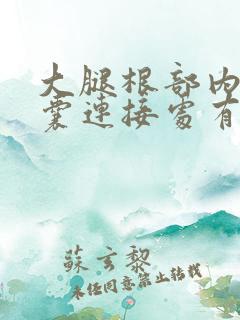 大腿根部内
囊連接處有
蘇玄黎
未经同意禁止转载